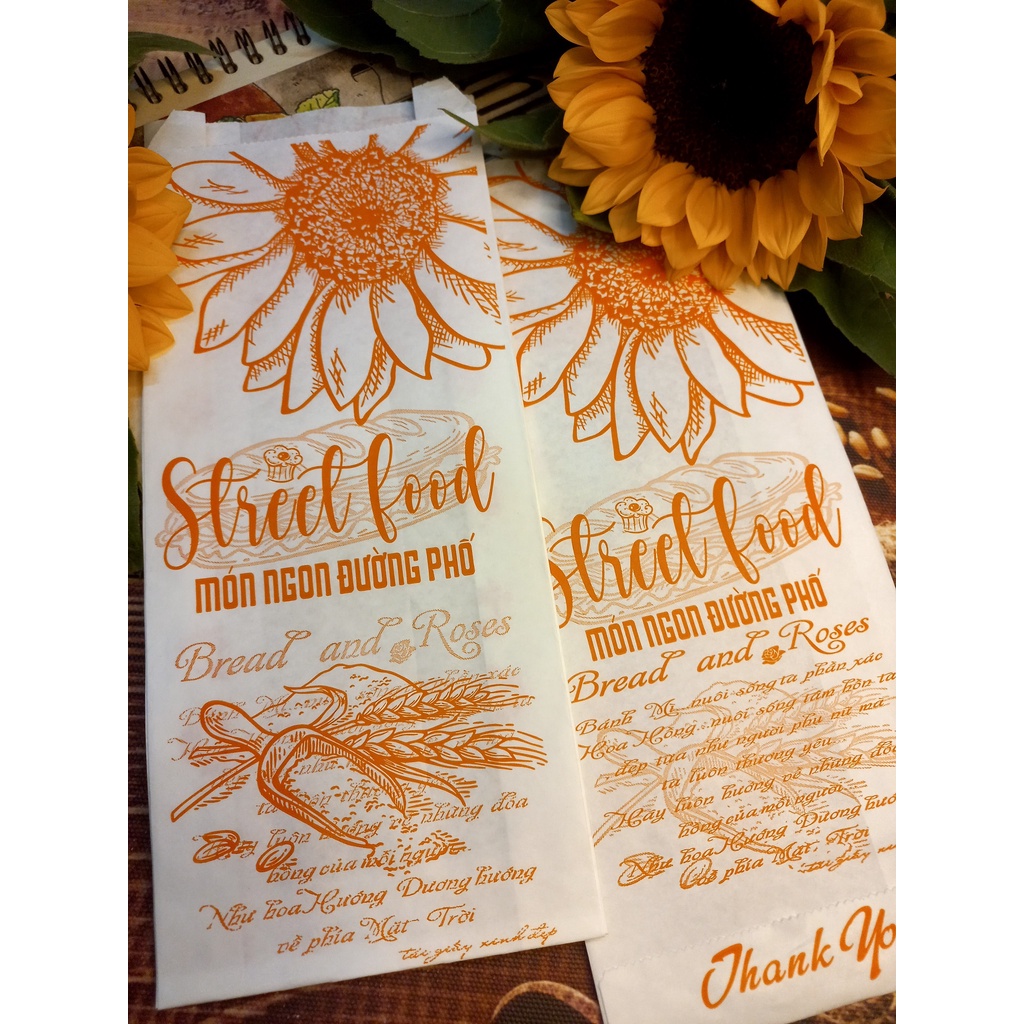 Street food
MÓN NGON ĐƯỜNG PHỐ
Bread and Roses
như
hồng của mỗi người
Như hoa Hướng Dương hướng
về phía Mặt Trời
túi giấy xinh đẹp
Street food
MÓN NGON ĐƯỜNG PHỐ
Bread and Roses
Bánh Mì nuôi sống ta phần xác
Hoa Hồng nuôi sống tâm hồn ta
đẹp tựa như người phụ nữ mà
ta luôn thương yêu
Hãy luôn hướng về những đóa
hồng của mỗi người
Như hoa Hướng Dương
về phía Mặt Trời
túi giấy
Thank